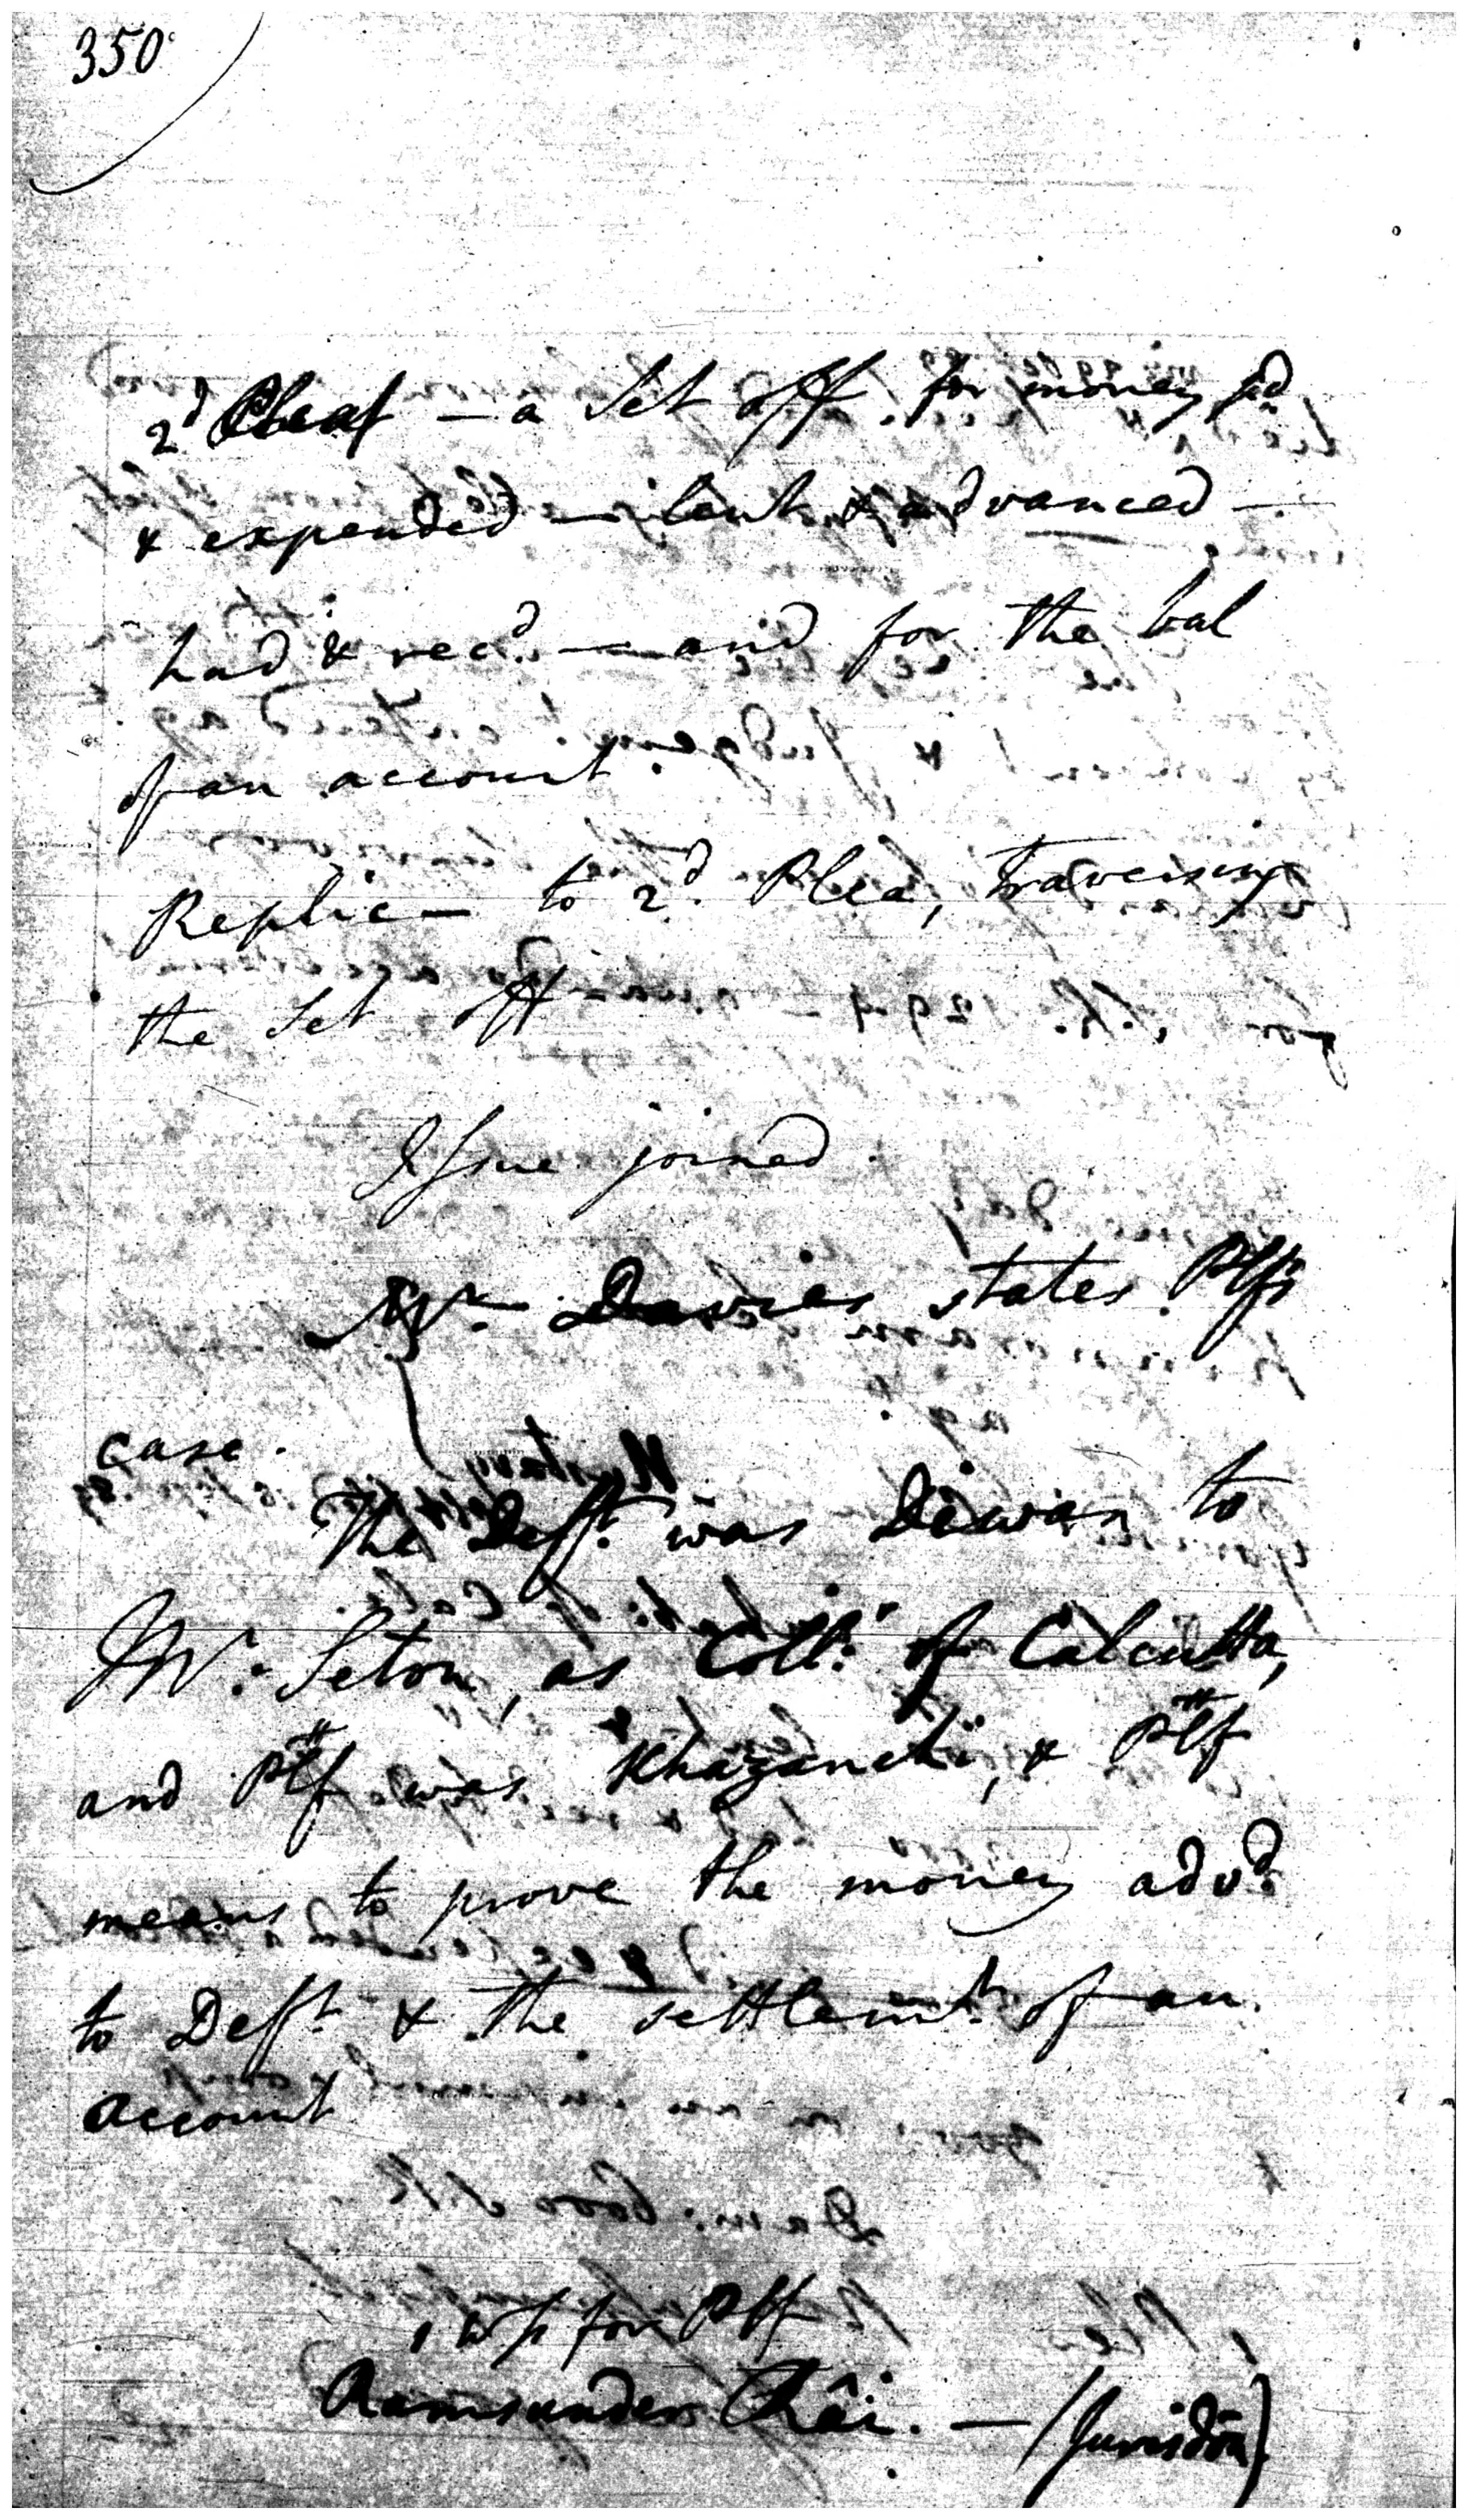 350
2d Plea - a Set off for money pd
& expended - lent & advanced -
had & recd. - and for the bal
of an account.
Replic- to 2d. Plea, traversing
the Set off
Issue joined.
Mr. Davies states Plfs
case.
The Deft. was Diwan to
Mr. Seton, as Coll: of Calcutta,
and Plf was Khazanchi, & Plf
means to prove the money advd.
to Deft. & the settlemt. of an
account
1 Wss for Plf
Ramsunder - (Jurisdon)